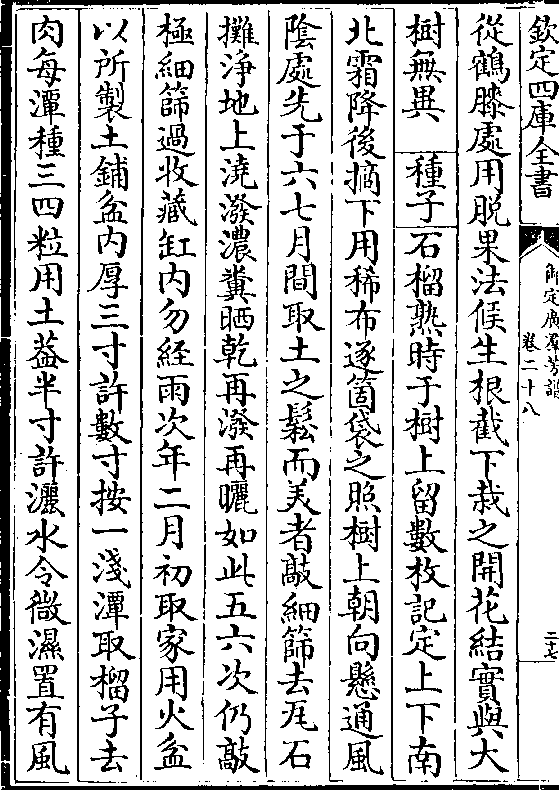 欽定四庫全書
御定廣羣芳譜
卷二十八
二十七
從鶴膝處用脱果法候生根截下栽之開花結實與大
樹無異 種子 石榴熟時于樹上留數枚記定上下南
北霜降後摘下用稀布逐箇袋之照樹上朝向懸通風
陰處先于六七月間取土之鬆而美者敲細篩去瓦石
攤淨地上澆潑濃糞晒乾再潑再曬如此五六次仍敲
極細篩過收藏缸内勿經雨次年二月初取家用火盆
以所製土鋪盆内厚三寸許數寸按一淺潭取榴子去
肉每潭種三四粒用土葢半寸許灑水令微濕置有風